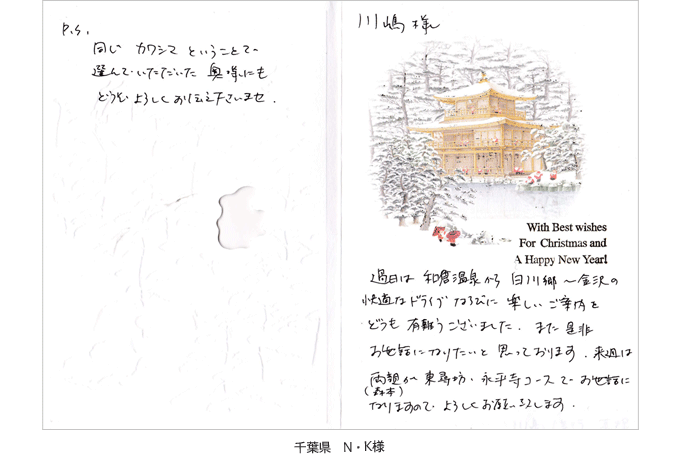 P.S.
同じ カワシマ ということで
選んでいただいた 奥様にも
どうぞ よろしくお伝え下さいませ.
川嶋 様
With Best wishes
For Christmas and
A Happy New Year!
過日は 和倉温泉から 白川郷〜金沢の
快適なドライブ ならびに 楽しい ご案内を
どうも 有難うございました. また 是非
お世話になりたいと 思っております. 来週は
両親が 東尋坊・永平寺コースで お世話に
(森本)
なりますので よろしくお願い致します.
千葉県 N・K様